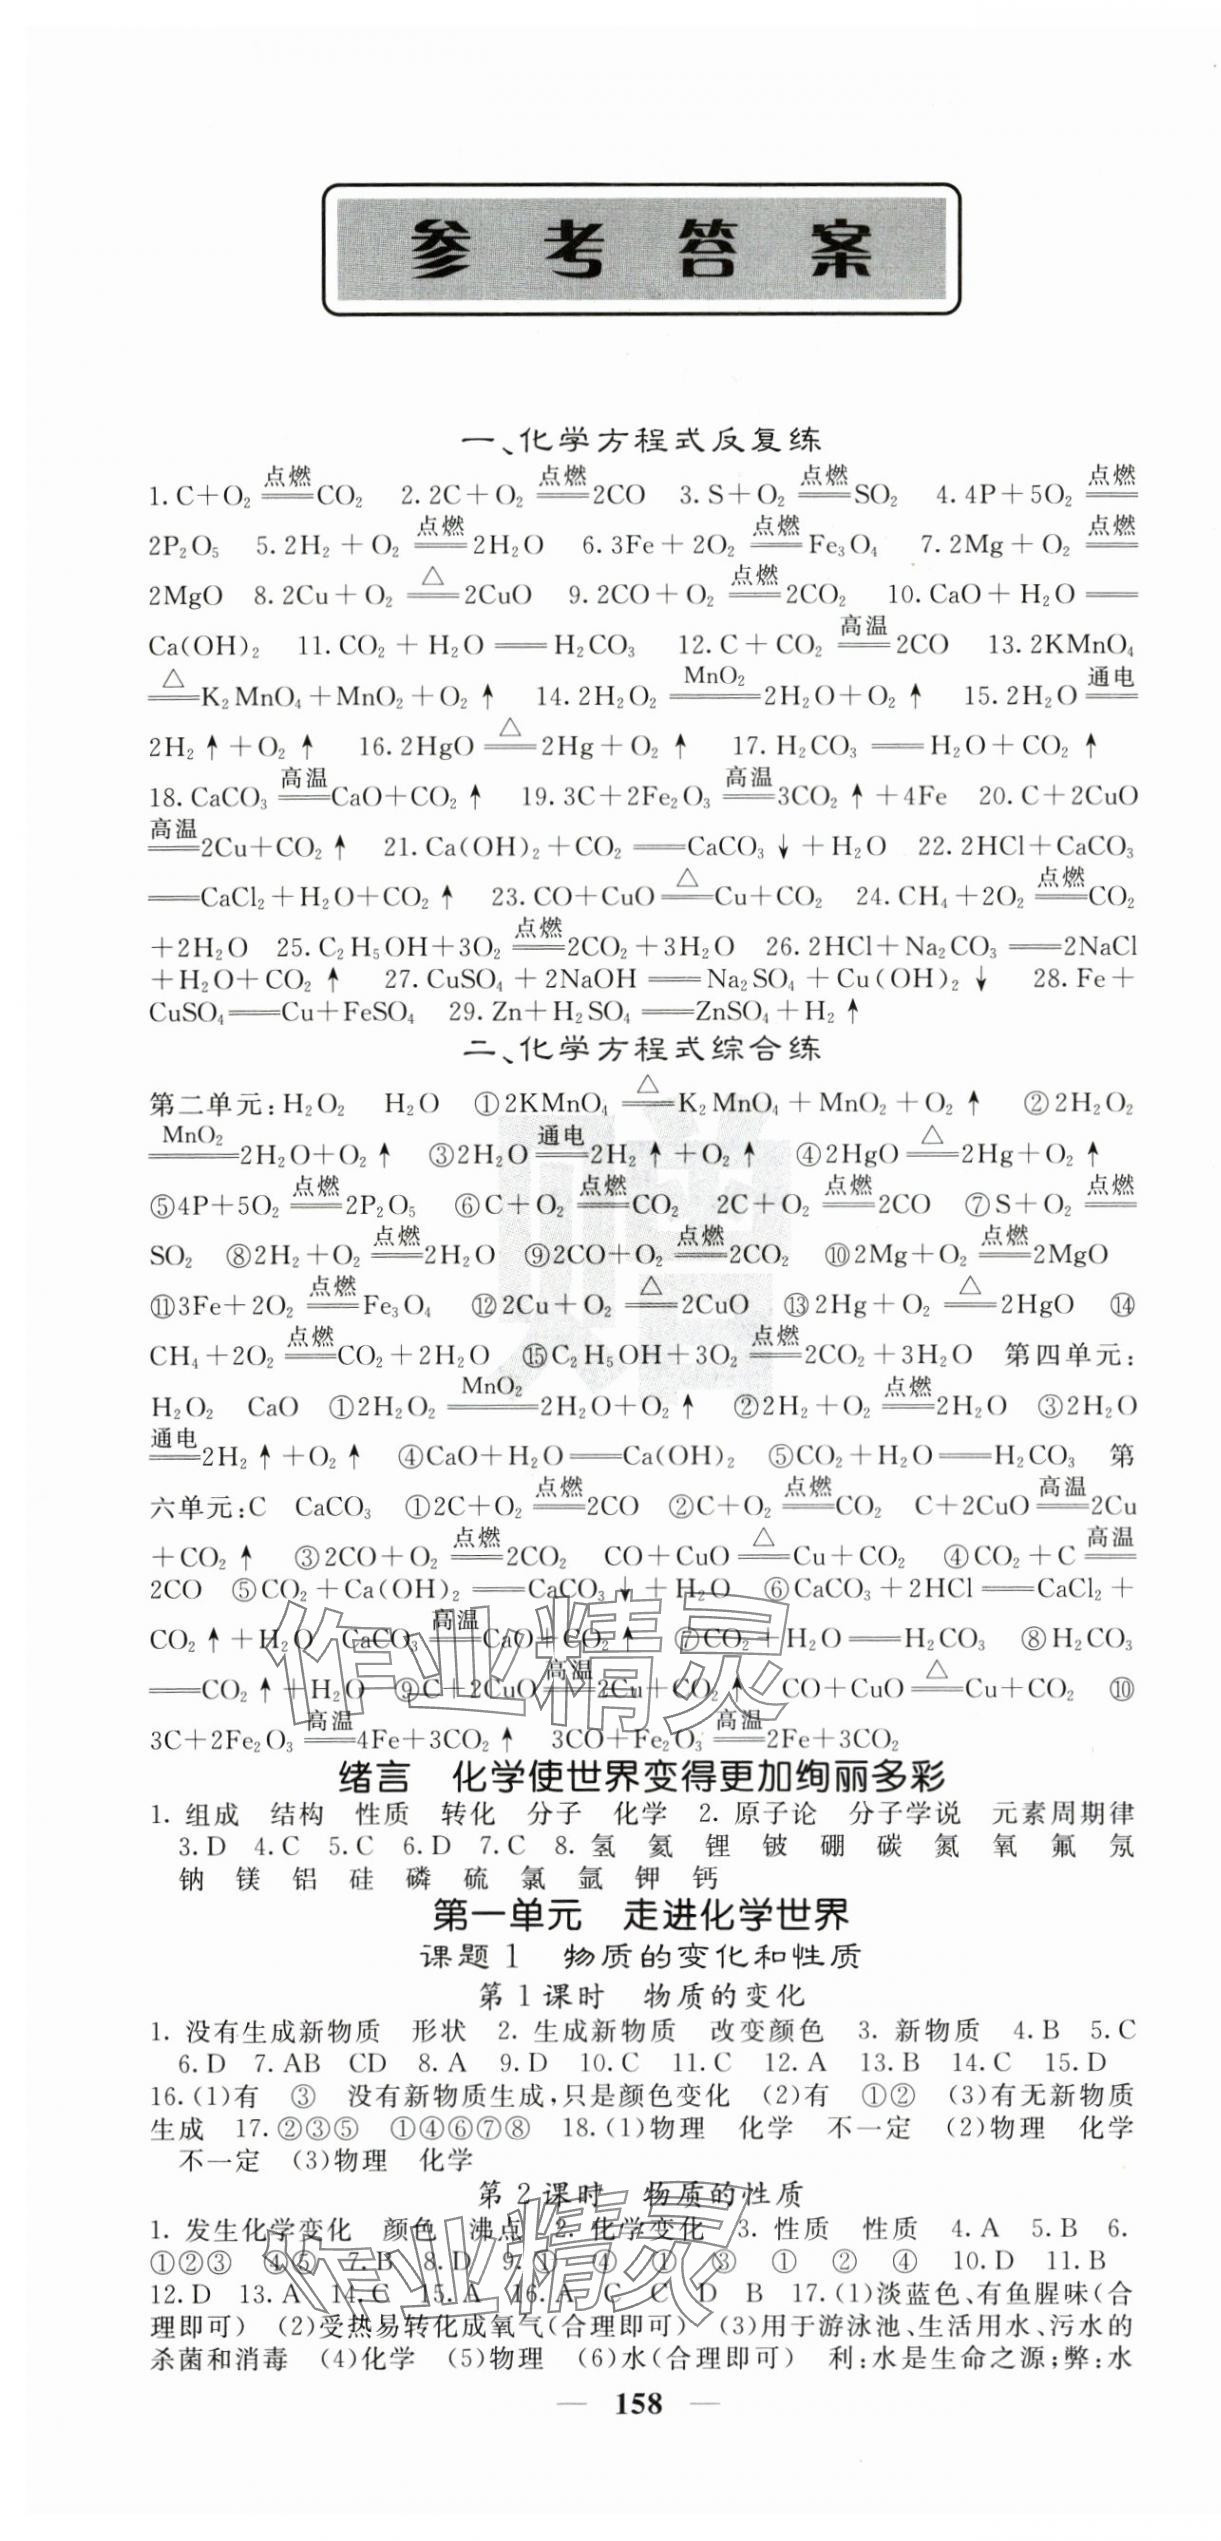 参考答案
一、化学方程式反复练
1. C+O₂ 点燃══CO₂ 2. 2C+O₂ 点燃══2CO 3. S+O₂ 点燃══SO₂ 4. 4P+5O₂ 点燃══
2P₂O₅ 5. 2H₂+O₂ 点燃══2H₂O 6. 3Fe+2O₂ 点燃══Fe₃O₄ 7. 2Mg+O₂ 点燃══
2MgO 8. 2Cu+O₂ △══2CuO 9. 2CO+O₂ 点燃══2CO₂ 10. CaO+H₂O══
Ca(OH)₂ 11. CO₂+H₂O══H₂CO₃ 12. C+CO₂ 高温══2CO 13. 2KMnO₄
△══K₂MnO₄+MnO₂+O₂↑ 14. 2H₂O₂ MnO₂══2H₂O+O₂↑ 15. 2H₂O 通电══
2H₂↑+O₂↑ 16. 2HgO △══2Hg+O₂↑ 17. H₂CO₃══H₂O+CO₂↑
18. CaCO₃ 高温══CaO+CO₂↑ 19. 3C+2Fe₂O₃ 高温══3CO₂↑+4Fe 20. C+2CuO
高温══2Cu+CO₂↑ 21. Ca(OH)₂+CO₂══CaCO₃↓+H₂O 22. 2HCl+CaCO₃
══CaCl₂+H₂O+CO₂↑ 23. CO+CuO △══Cu+CO₂ 24. CH₄+2O₂ 点燃══CO₂
+2H₂O 25. C₂H₅OH+3O₂ 点燃══2CO₂+3H₂O 26. 2HCl+Na₂CO₃══2NaCl
+H₂O+CO₂↑ 27. CuSO₄+2NaOH══Na₂SO₄+Cu(OH)₂↓ 28. Fe+
CuSO₄══Cu+FeSO₄ 29. Zn+H₂SO₄══ZnSO₄+H₂↑
二、化学方程式综合练
第二单元:H₂O₂ H₂O ①2KMnO₄ △══K₂MnO₄+MnO₂+O₂↑ ②2H₂O₂
MnO₂══2H₂O+O₂↑ ③2H₂O 通电══2H₂↑+O₂↑ ④2HgO △══2Hg+O₂↑
⑤4P+5O₂ 点燃══2P₂O₅ ⑥C+O₂ 点燃══CO₂ 2C+O₂ 点燃══2CO ⑦S+O₂ 点燃══
SO₂ ⑧2H₂+O₂ 点燃══2H₂O ⑨2CO+O₂ 点燃══2CO₂ ⑩2Mg+O₂ 点燃══2MgO
⑪3Fe+2O₂ 点燃══Fe₃O₄ ⑫2Cu+O₂ △══2CuO ⑬2Hg+O₂ △══2HgO ⑭
CH₄+2O₂ 点燃══CO₂+2H₂O ⑮C₂H₅OH+3O₂ 点燃══2CO₂+3H₂O 第四单元:
H₂O₂ CaO ①2H₂O₂ MnO₂══2H₂O+O₂↑ ②2H₂+O₂ 点燃══2H₂O ③2H₂O
通电══2H₂↑+O₂↑ ④CaO+H₂O══Ca(OH)₂ ⑤CO₂+H₂O══H₂CO₃ 第
六单元:C CaCO₃ ①2C+O₂ 点燃══2CO ②C+O₂ 点燃══CO₂ C+2CuO 高温══2Cu
+CO₂↑ ③2CO+O₂ 点燃══2CO₂ CO+CuO △══Cu+CO₂ ④CO₂+C 高温══
2CO ⑤CO₂+Ca(OH)₂══CaCO₃↓+H₂O ⑥CaCO₃+2HCl══CaCl₂+
CO₂↑+H₂O CaCO₃ 高温══CaO+CO₂↑ ⑦CO₂+H₂O══H₂CO₃ ⑧H₂CO₃
══CO₂↑+H₂O ⑨C+2CuO 高温══2Cu+CO₂↑ CO+CuO △══Cu+CO₂ ⑩
3C+2Fe₂O₃ 高温══4Fe+3CO₂↑ 3CO+Fe₂O₃ 高温══2Fe+3CO₂
绪言 化学使世界变得更加绚丽多彩
1. 组成 结构 性质 转化 分子 化学 2. 原子论 分子学说 元素周期律
3. D 4. C 5. C 6. D 7. C 8. 氢 氦 锂 铍 硼 碳 氮 氧 氟 氖
钠 镁 铝 硅 磷 硫 氯 氩 钾 钙
第一单元 走进化学世界
课题1 物质的变化和性质
第1课时 物质的变化
1. 没有生成新物质 形状 2. 生成新物质 改变颜色 3. 新物质 4. B 5. C
6. D 7. AB CD 8. A 9. D 10. C 11. C 12. A 13. B 14. C 15. D
16. (1)有 ③ 没有新物质生成,只是颜色变化 (2)有 ①② (3)有无新物质
生成 17. ②③⑤ ①④⑥⑦⑧ 18. (1)物理 化学 不一定 (2)物理 化学
不一定 (3)物理 化学
第2课时 物质的性质
1. 发生化学变化 颜色 沸点 2. 化学变化 3. 性质 性质 4. A 5. B 6.
①②③ ④⑤ 7. B 8. D 9. ① ④ ① ③ ① ② ④ 10. D 11. B
12. D 13. A 14. C 15. A 16. A C C D B 17. (1)淡蓝色、有鱼腥味(合
理即可) (2)受热易转化成氧气(合理即可) (3)用于游泳池、生活用水、污水的
杀菌和消毒 (4)化学 (5)物理 (6)水(合理即可) 利:水是生命之源;弊:水
— 158 —
赠
作业精灵
作业精灵